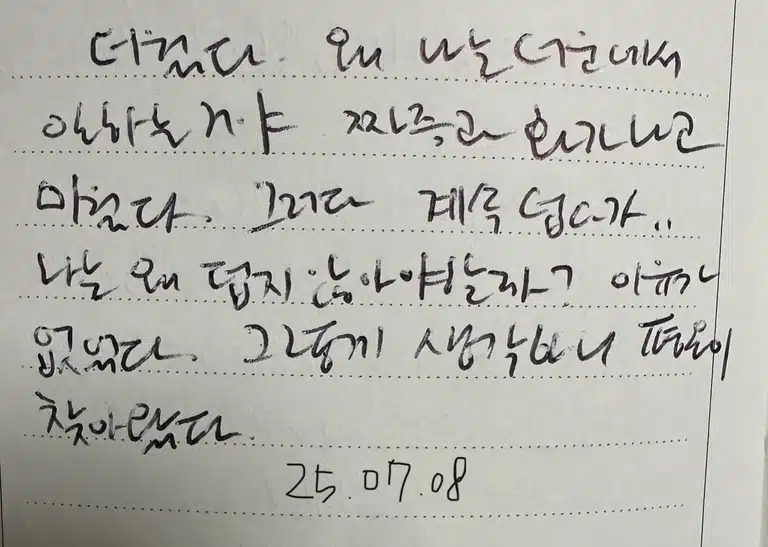 더웠다. 왜 나는 더운데서
일하는거야 짜증과 화가나고
미웠다. 그러다 계속 덥다가..
나는 왜 덥지 않아야할까? 이유가
없었다. 그렇게 생각하니 평온이
찾아왔다.
25.07.08